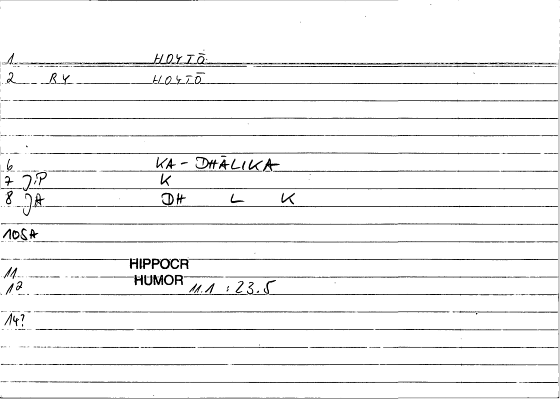 1 HOYTÖ
2 RY HOYTÖ
6 KA-DHĀLIKA
7 JiP K
8 JA DH L K
10SA
11 HIPPOCR
12 HUMOR 11.1 : 23.5
14?